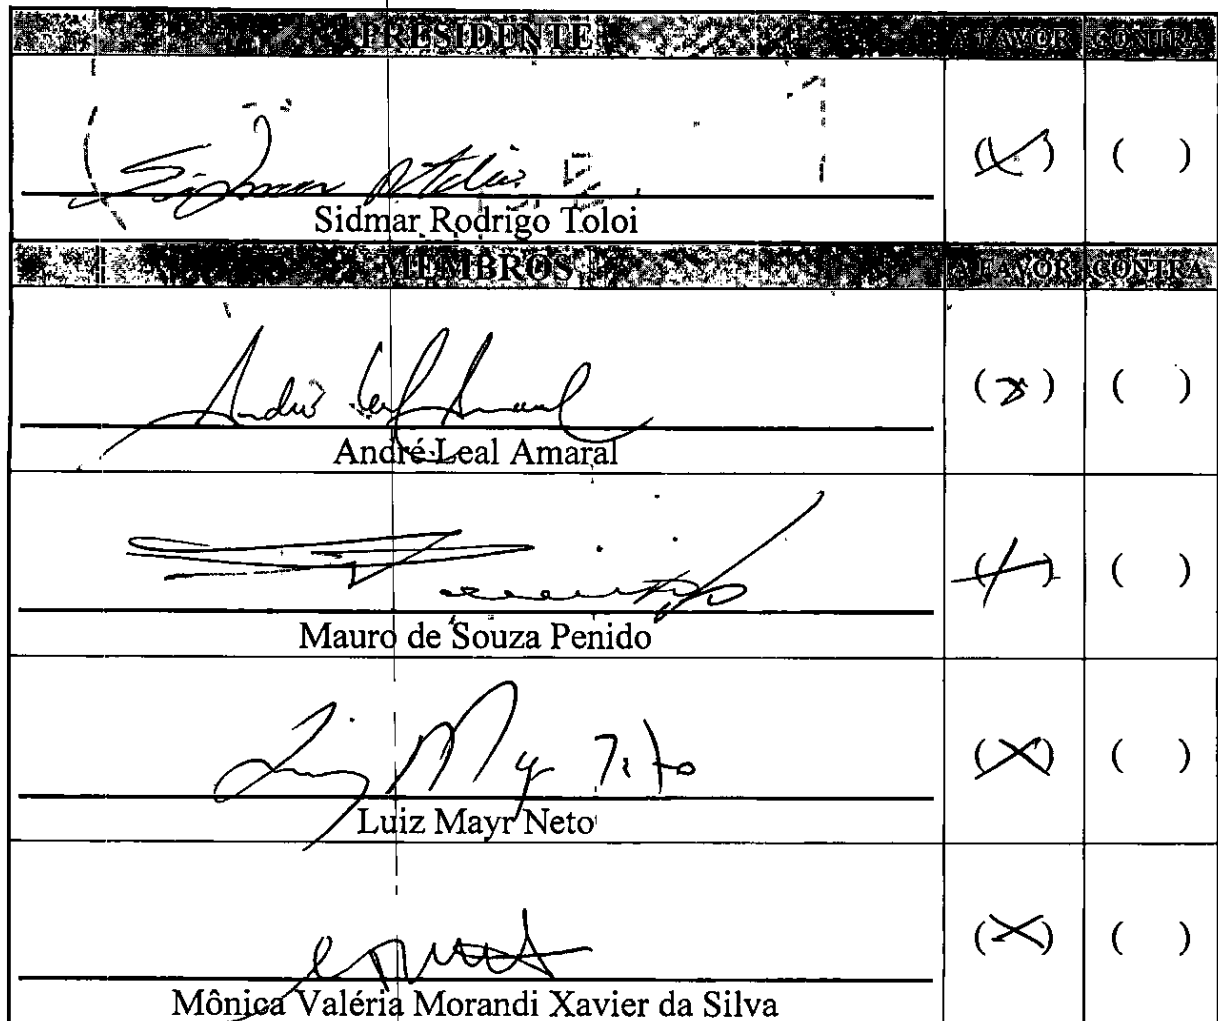 PRESIDENTE A FAVOR CONTRA
(X) ( )
Sidmar Rodrigo Toloi
MEMBROS A FAVOR CONTRA
André Leal Amaral (X) ( )
André Leal Amaral
(X) ( )
Mauro de Souza Penido
(X) ( )
Luiz Mayr Neto
(X) ( )
Mônica Valéria Morandi Xavier da Silva